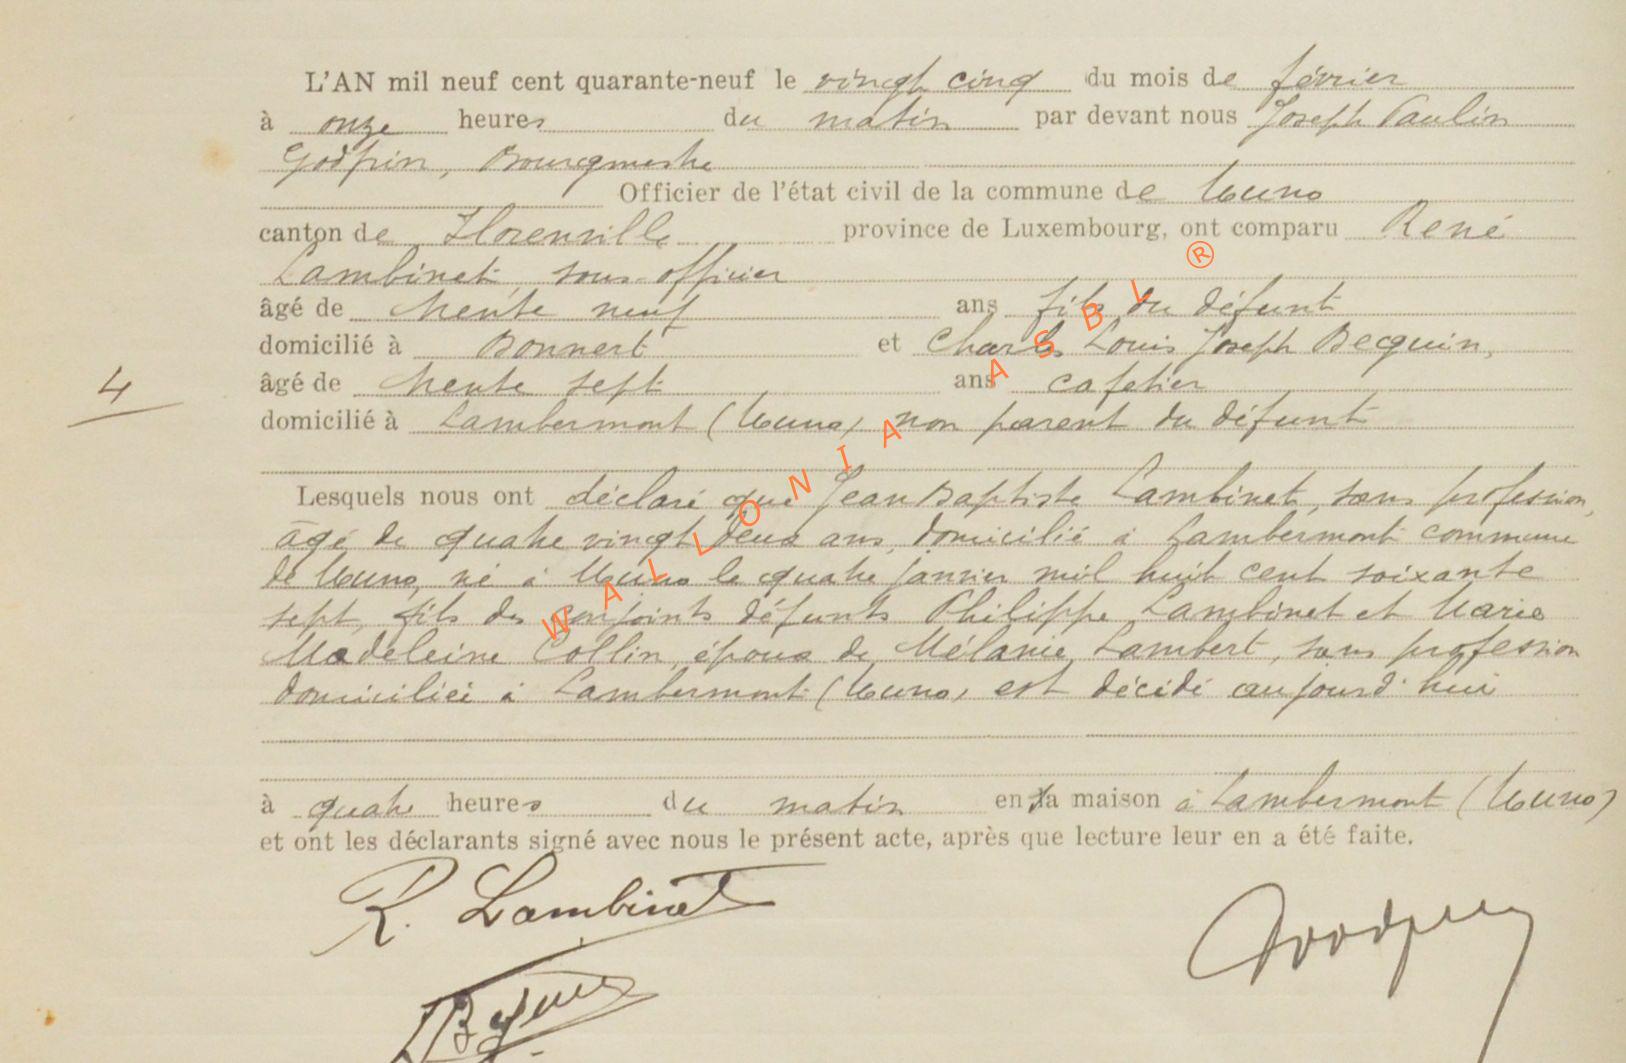 L'AN mil neuf cent quarante-neuf le vingt cinq du mois de février
à onze heures du matin par devant nous Joseph Paulin
Godfrin, Bourgmestre
Officier de l'état civil de la commune de Muno
canton de Florenville province de Luxembourg, ont comparu René
Lambinet sous-officier
âgé de trente neuf ans fils du défunt
domicilié à Bonnert et Charles Louis Joseph Becquin,
âgé de trente sept ans cafetier
4
domicilié à Lambermont (Muno) non parent du défunt
Lesquels nous ont déclaré que Jean Baptiste Lambinet, sans profession,
âgé de quatre vingt deux ans, domicilié à Lambermont commune
de Muno, né à Muno le quatre janvier mil huit cent soixante
sept, fils des conjoints défunts Philippe Lambinet et Marie
Madeleine Collin, époux de Mélanie Lambert, sans profession
domiciliée à Lambermont (Muno) est décédé aujourd'hui
à quatre heures du matin en sa maison à Lambermont (Muno)
et ont les déclarants signé avec nous le présent acte, après que lecture leur en a été faite.
R. Lambinet
WALLONIA ASBL ®